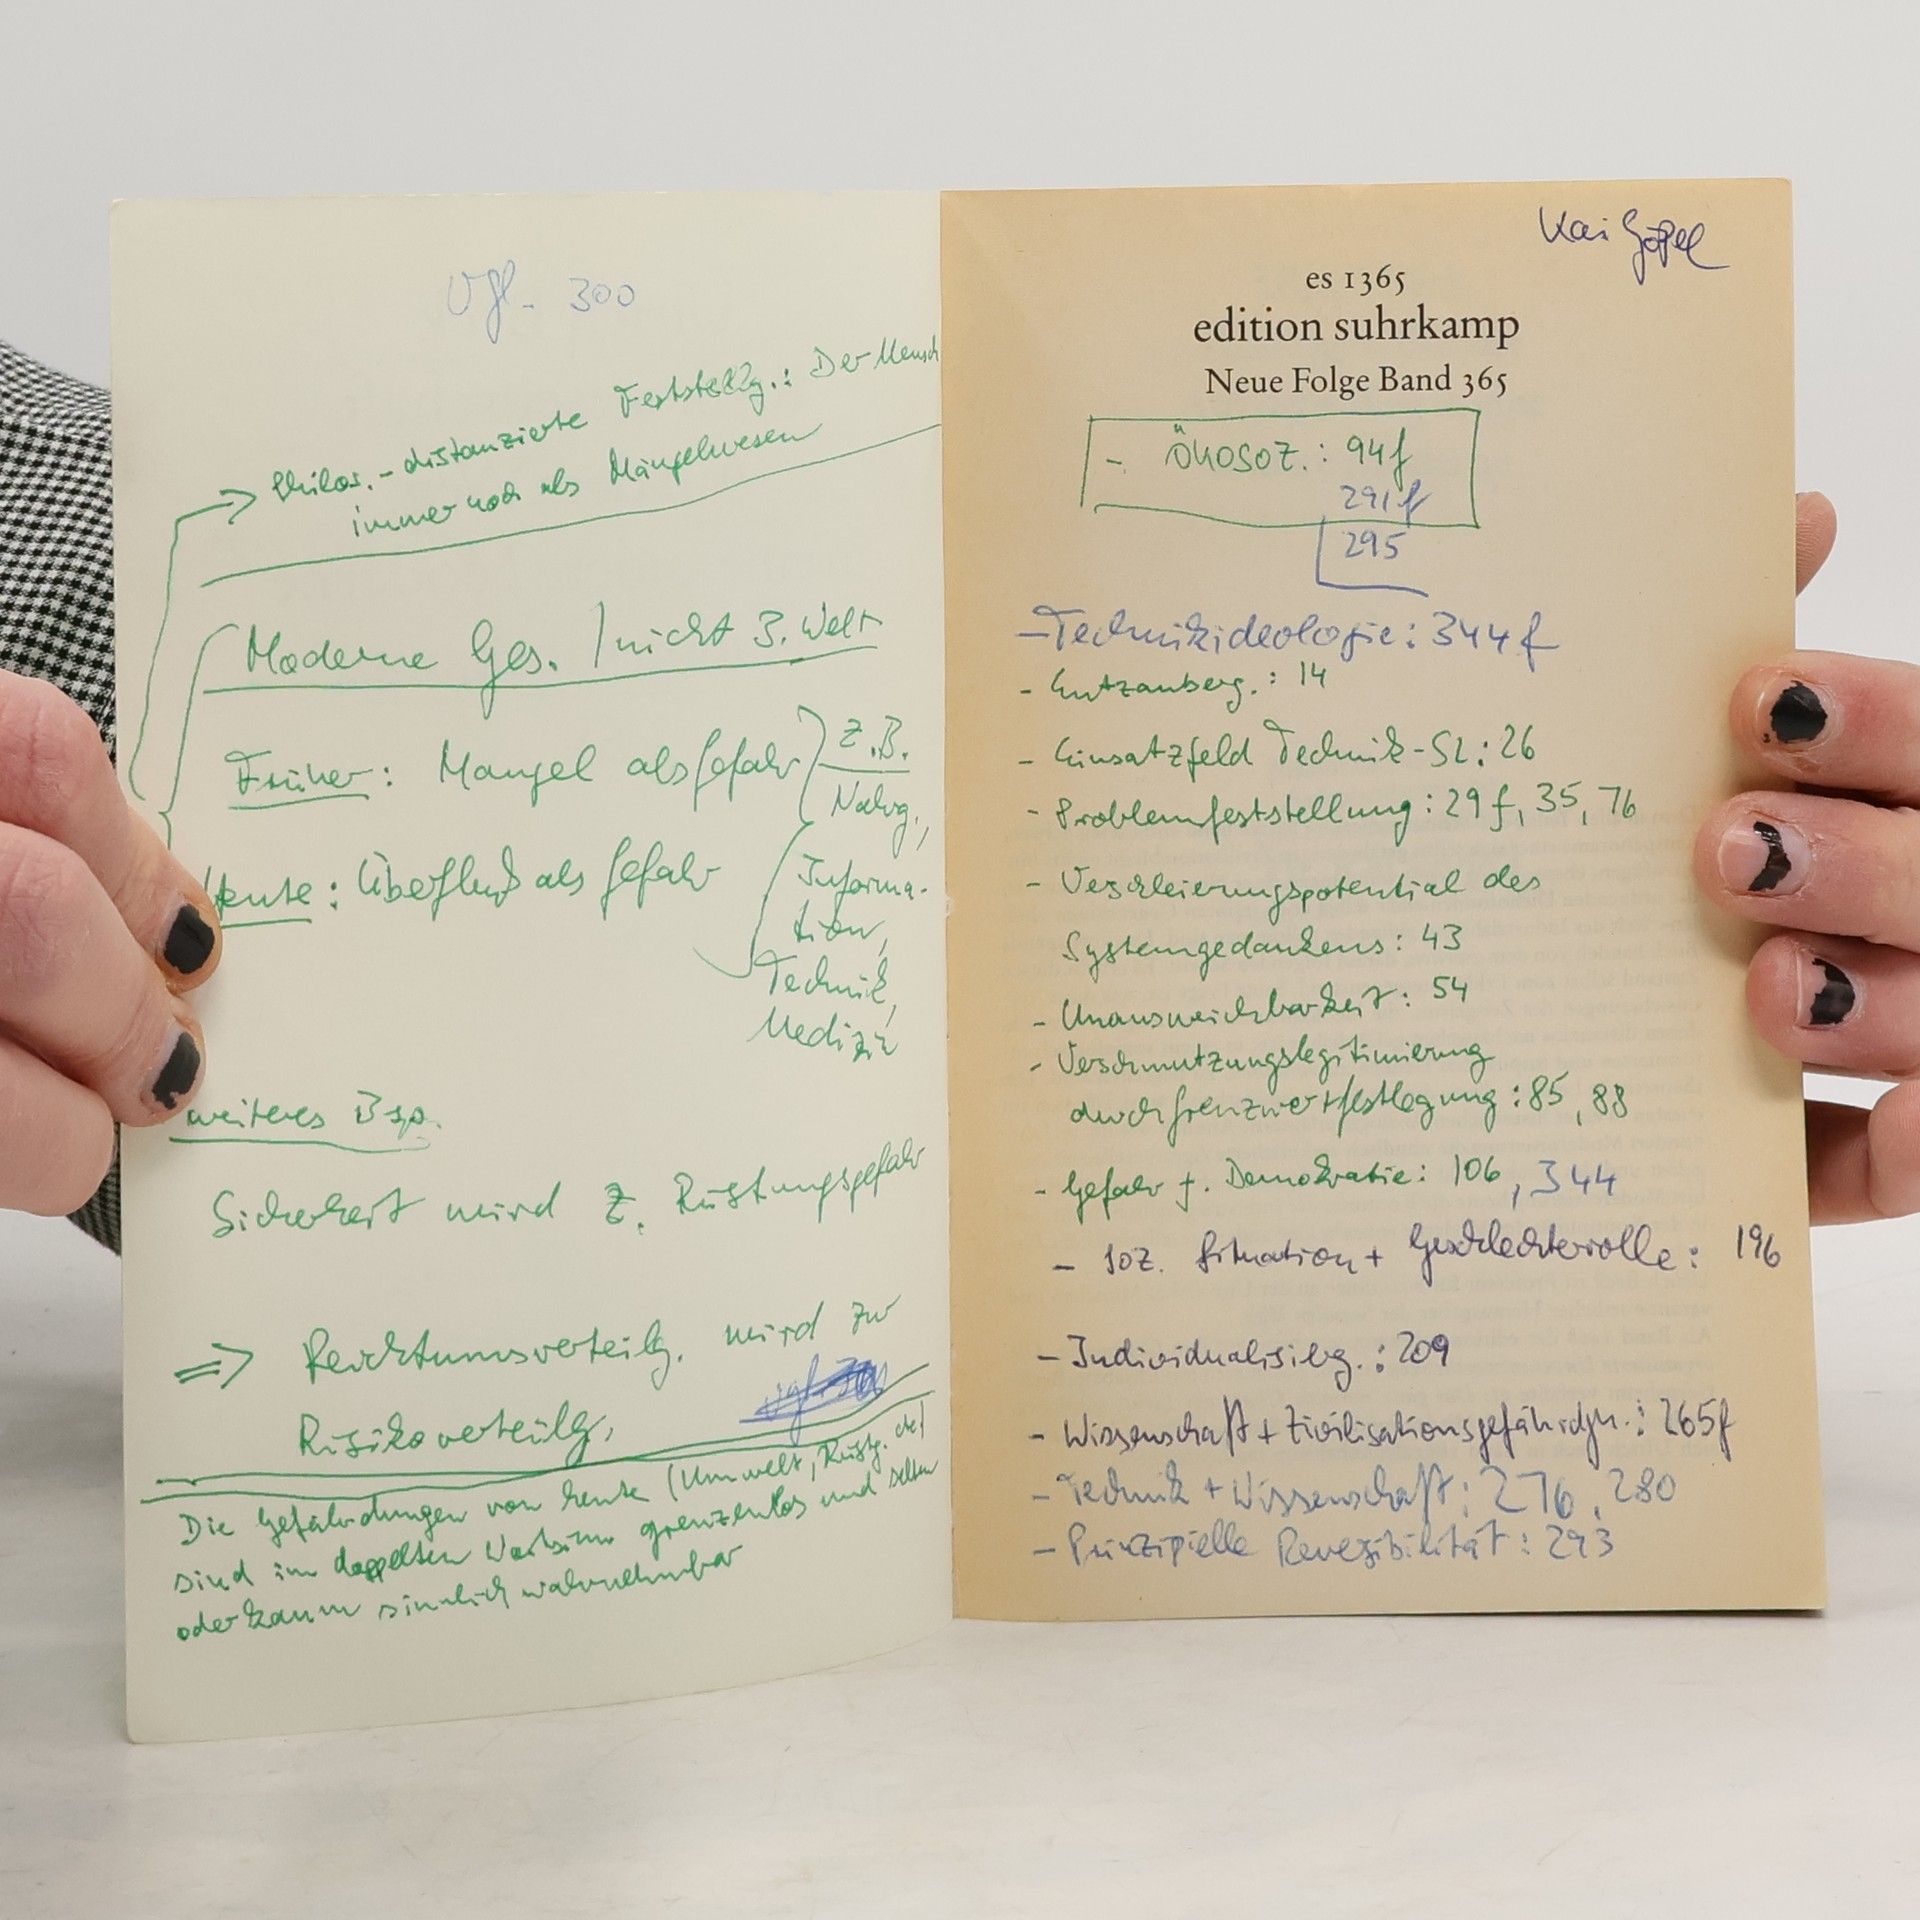 Vgl. 300
Philos.-distanzierte Feststellg.: Der Mensch
immer noch als Mängelwesen
Moderne Ges. / nicht 3. Welt
Früher: Mangel als Gefahr
z.B.
Nahrg.,
Heute: Überfluß als Gefahr
Informa-
tion,
Technik,
Medizin
weiteres Bsp.
Sicherheit wird z. Rüstungsgefahr
=> Reichtumsverteilg. wird zur
Risikoverteilg.
Die Gefährdungen von heute (Umwelt, Rüstg. etc)
sind im doppelten Wortsinn grenzenlos und selten
oder kaum sinnlich wahrnehmbar
Kai Göpel
es 1365
edition suhrkamp
Neue Folge Band 365
- ÖKOSOZ.: 94f
291f
295
- Technikideologie: 344f
- Entzauberg.: 14
- Einsatzfeld Technik-SL: 26
- Problemfeststellung: 29f, 35, 76
- Verschleierungspotential des
Systemgedankens: 43
- Unausweichbarkeit: 54
- Verschmutzungslegitimierung
durch Grenzwertfestlegung: 85, 88
- Gefahr f. Demokratie: 106, 344
- soz. Situation + Geschlechterrolle: 196
- Individualisierg.: 209
- Wissenschaft + Zivilisationsgefährdgn.: 265f
- Technik + Wissenschaft: 276, 280
- Prinzipielle Reversibilität: 293